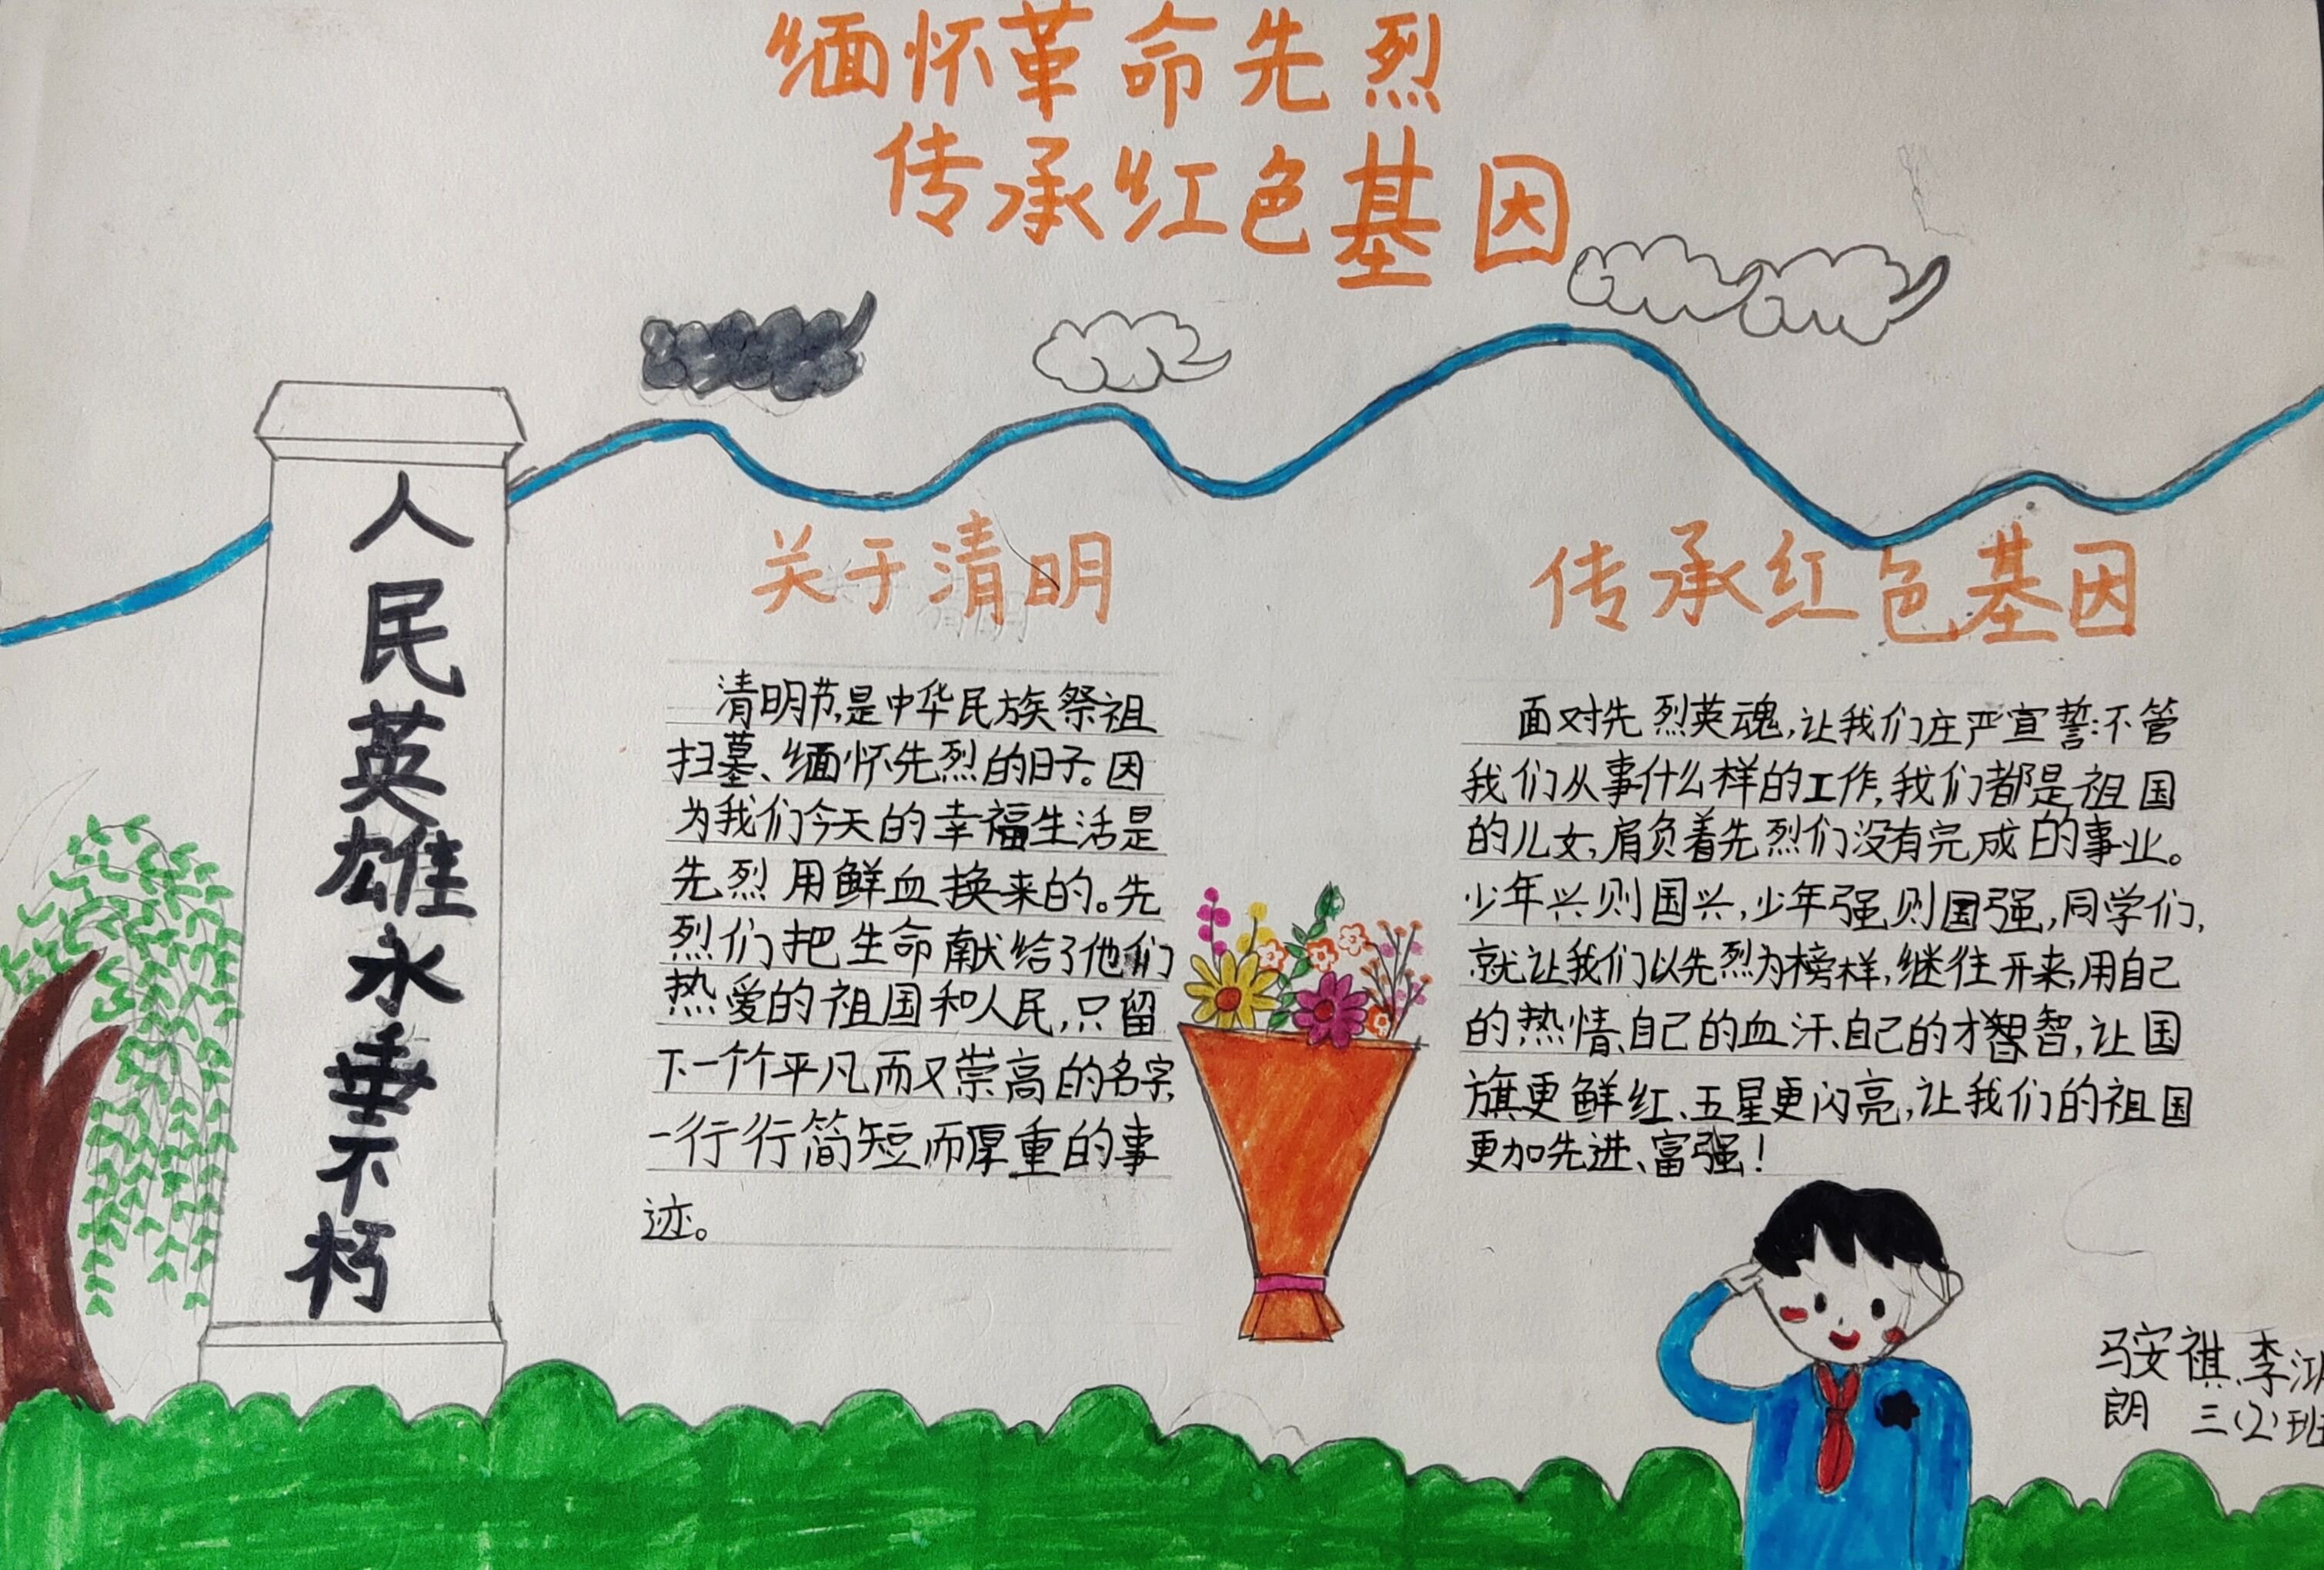 缅怀革命先烈
传承红色基因
人民英雄永垂不朽
关于清明
清明节,是中华民族祭祖
扫墓、缅怀先烈的日子。因
为我们今天的幸福生活是
先烈用鲜血换来的。先
烈们把生命献给了他们
热爱的祖国和人民,只留
下一个个平凡而又崇高的名字,
一行行简短而厚重的事
迹。
传承红色基因
面对先烈英魂,让我们庄严宣誓:不管
我们从事什么样的工作,我们都是祖国
的儿女,肩负着先烈们没有完成的事业。
少年兴则国兴,少年强则国强,同学们,
就让我们以先烈为榜样,继往开来,用自己
的热情、自己的血汗、自己的才智,让国
旗更鲜红、五星更闪亮,让我们的祖国
更加先进、富强!
马安祺、李
朗 三(2)班